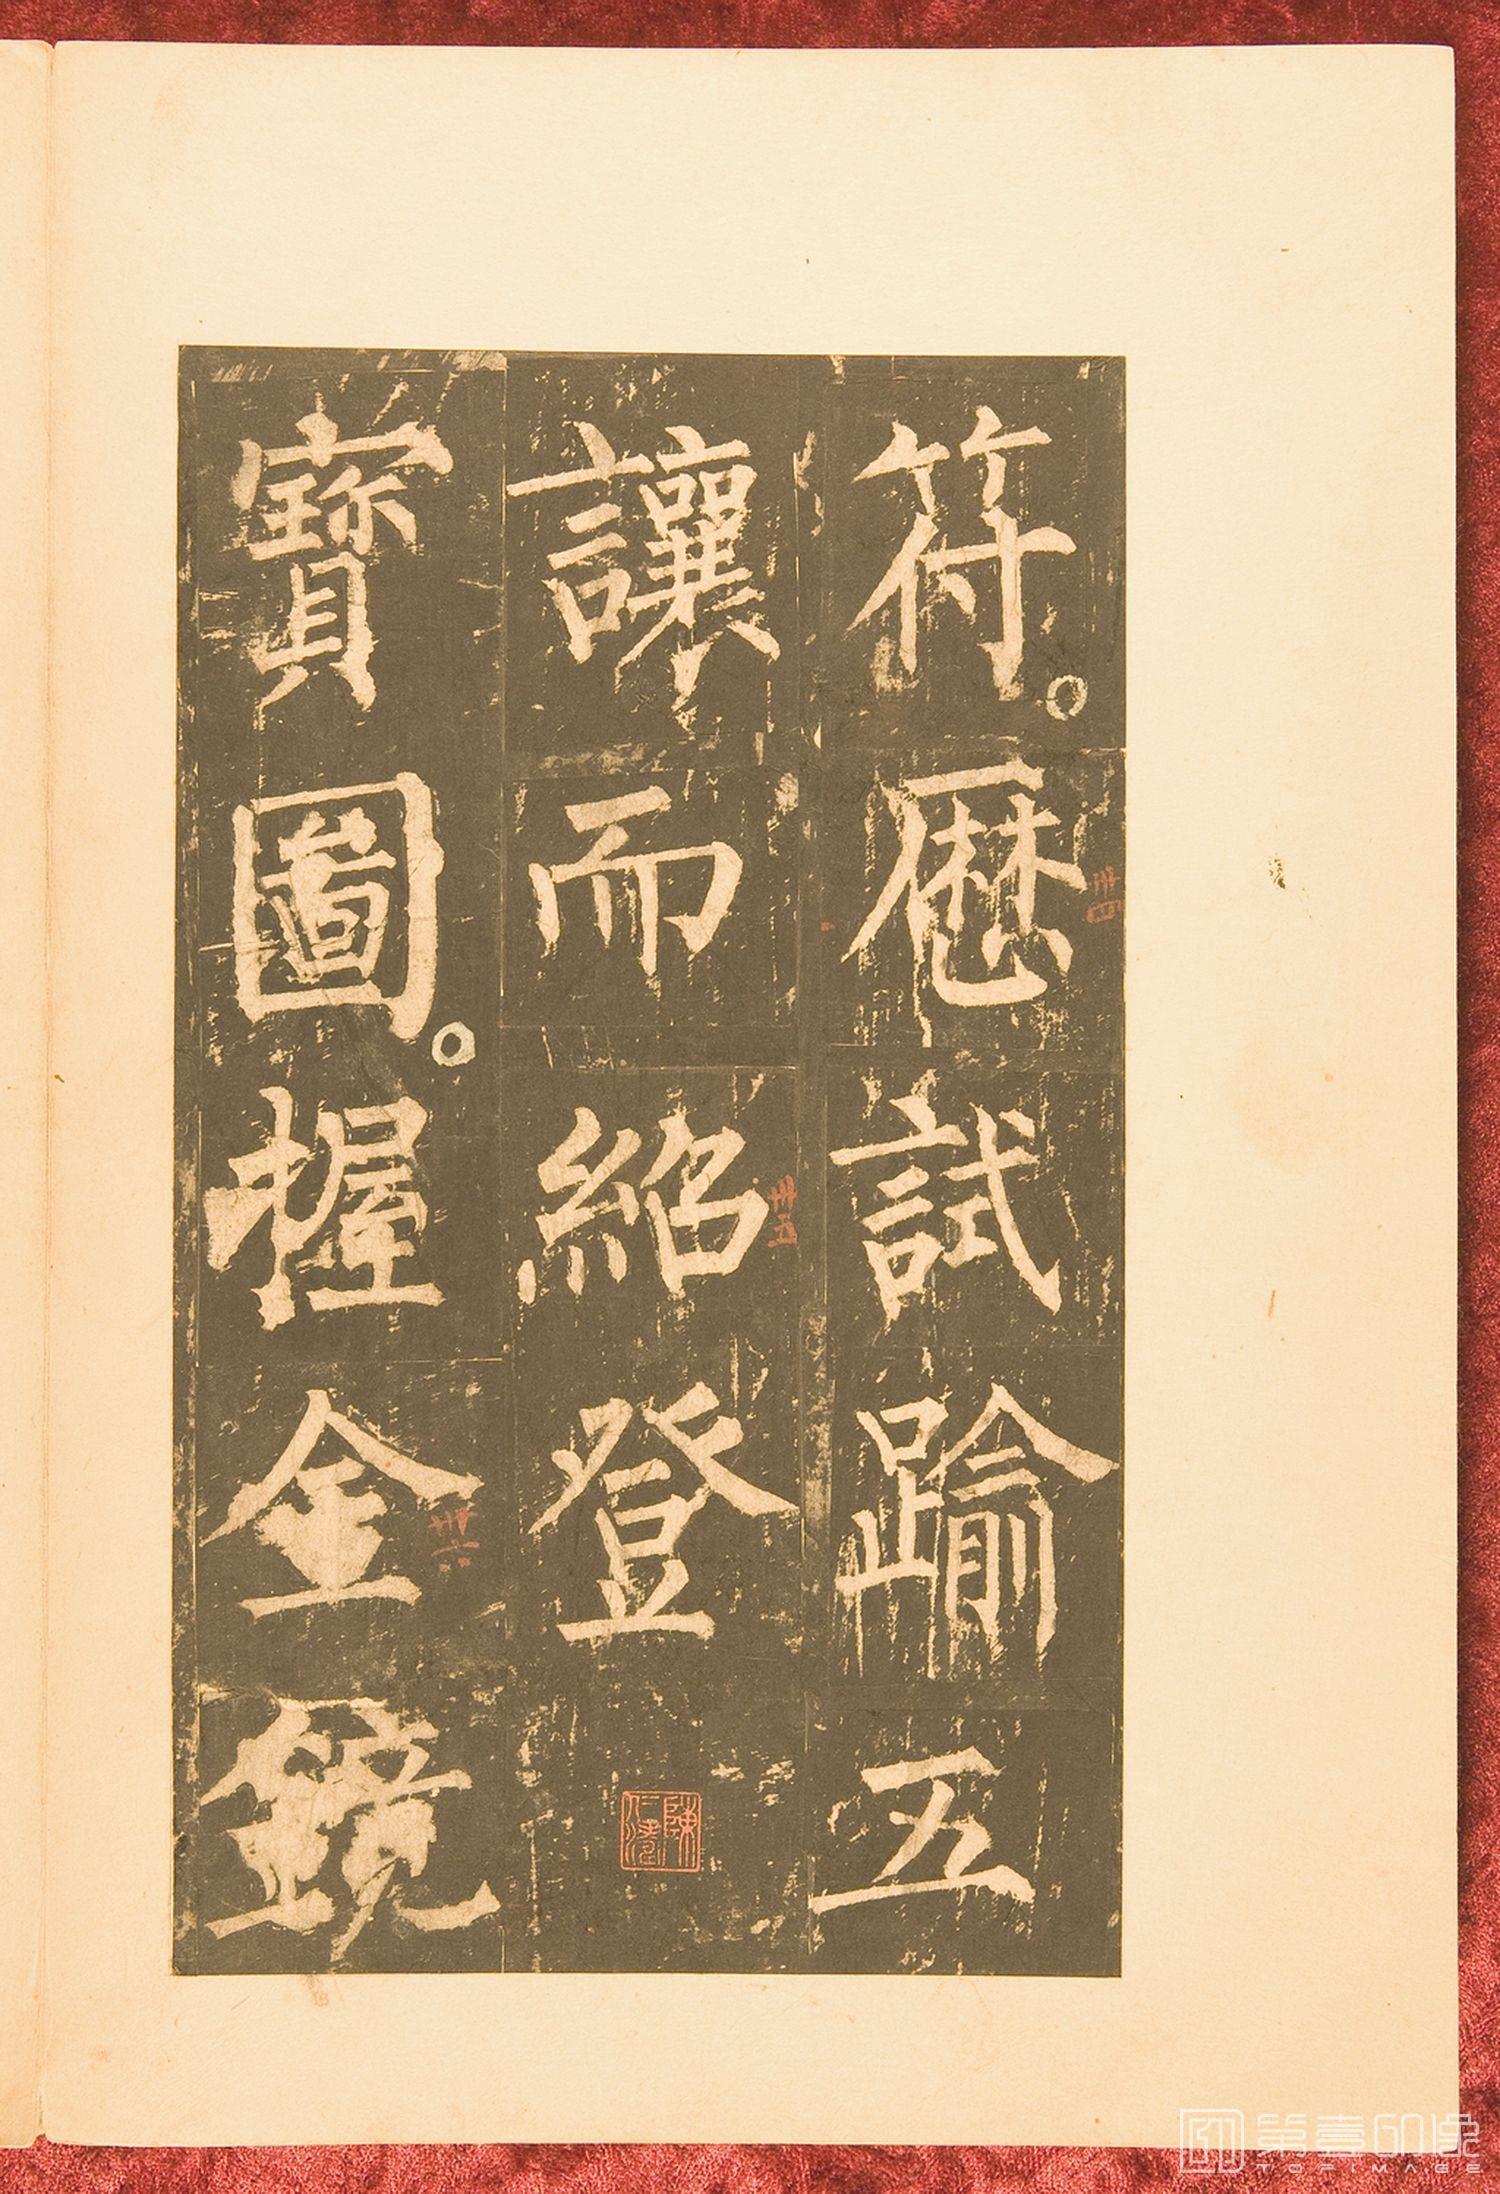 符。歷試踰五
讓而紹登
寶圖。握金鏡
卅四
卅五
卅六
第壹印象
TOPIMAGE